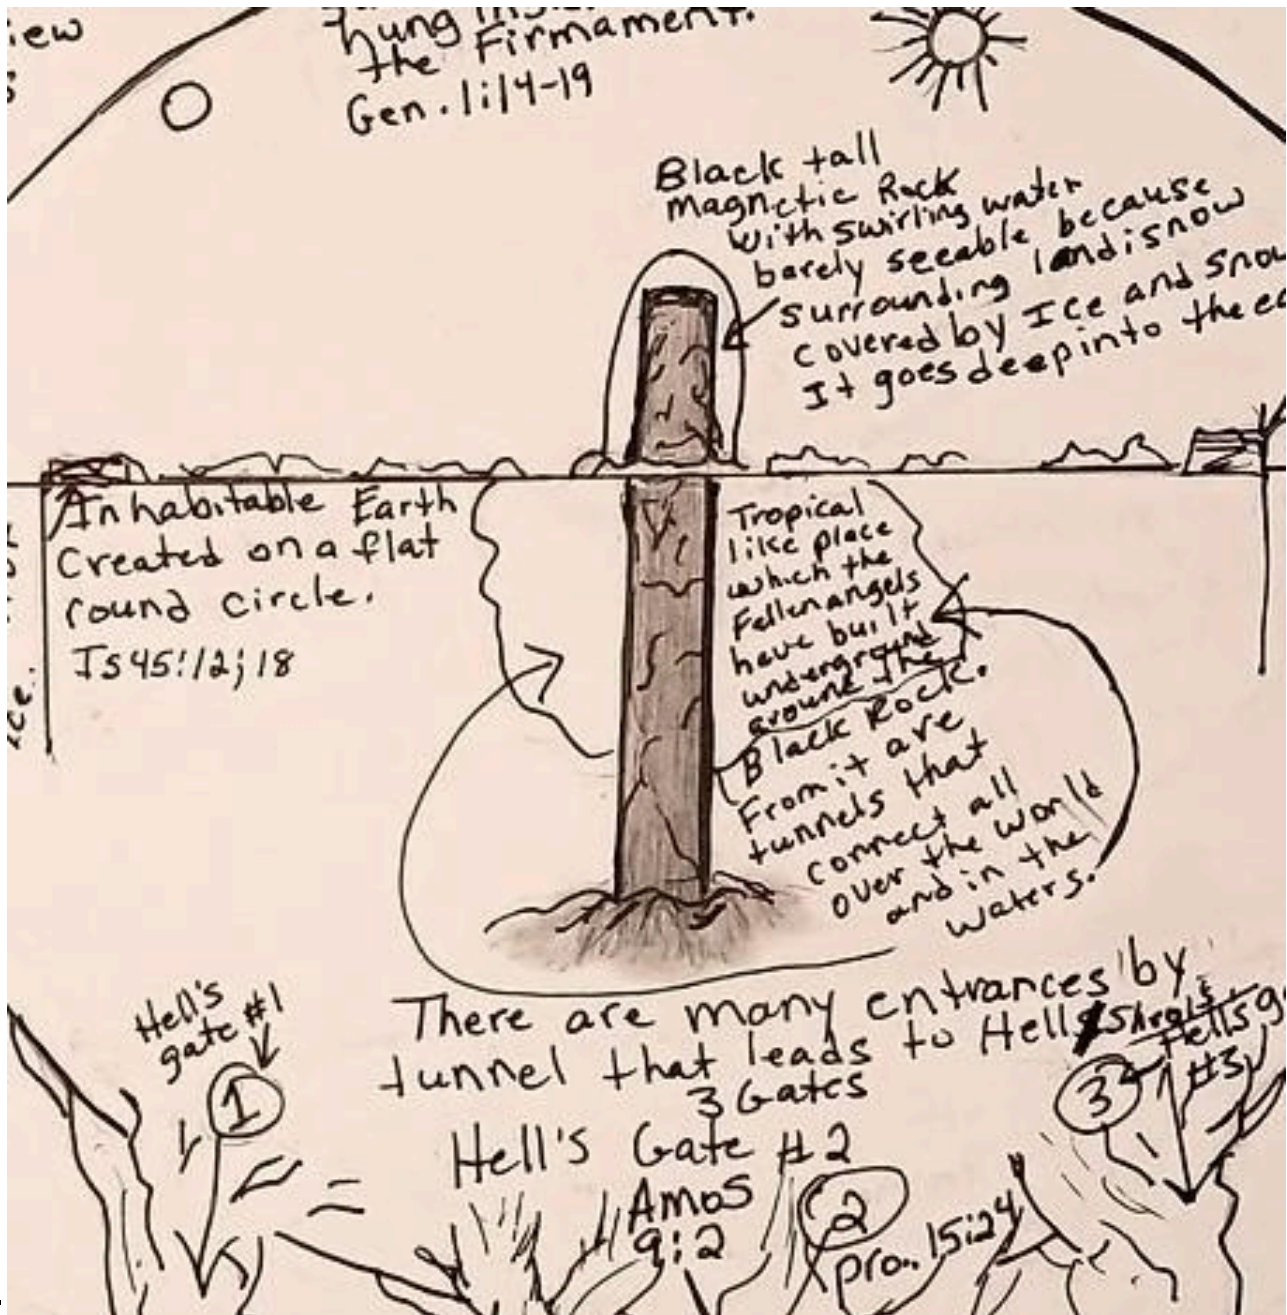 iew
hung
the Firmament.
Gen. 1:14-19
Black tall
magnetic Rock
with swirling water
barely seeable because
surrounding land is now
covered by Ice and Snow
It goes deep into the
Inhabitable Earth
Created on a flat
round circle.
Is 45:12;18
ice.
Tropical
like place
which the
Fallen angels
have built
underground
around the
Black Rock.
From it are
tunnels that
connect all
over the World
and in the
waters.
There are many entrances by
tunnel that leads to Hell/Sheol's
3 Gates
Hell's
gate #1
1
Hell's Gate #2
Amos
9:2
2
pro.. 15:24
3
Hells
#3